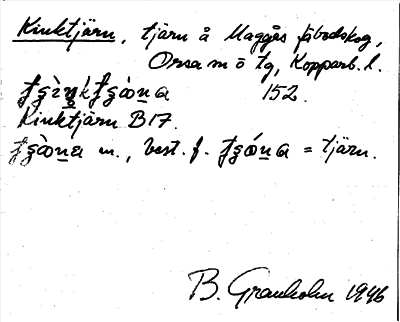 Kinktjärn, tjärn å Maggås fäbodskog,
Orsa m ō tg, Kopparb. l.
152.
Kinktjärn B17.
m., best. f. = tjärn.
B. Granholm 1946